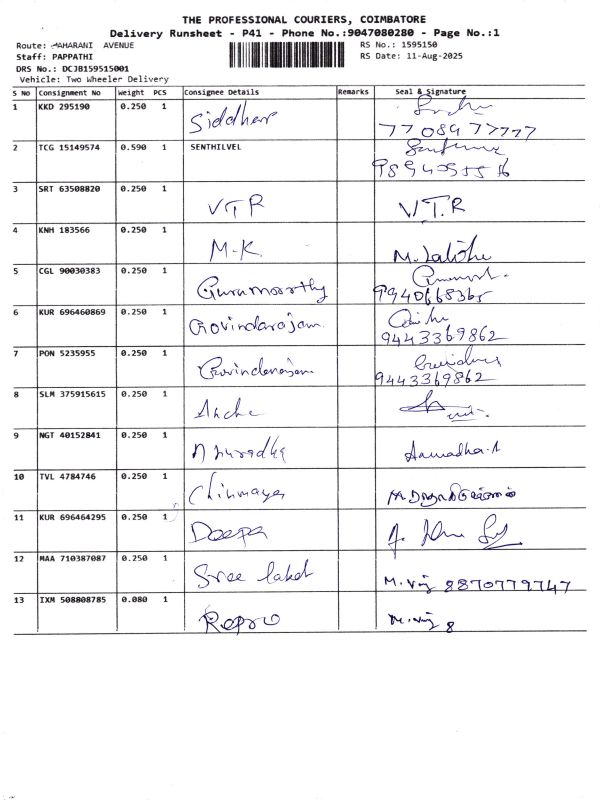 THE PROFESSIONAL COURIERS, COIMBATORE
Delivery Runsheet - P41 - Phone No.:9047080280 - Page No.:1
Route: MAHARANI AVENUE
RS No.: 1595150
Staff: PAPPATHI
RS Date: 11-Aug-2025
DRS No.: DCJB159515001
Vehicle: Two Wheeler Delivery
S No Consignment No Weight PCS Consignee Details Remarks Seal & Signature
1 KKD 295190 0.250 1 Siddhar
7708977777
2 TCG 15149574 0.590 1 SENTHILVEL
3 SRT 63508820 0.250 1 VTR V.T.R
4 KNH 183566 0.250 1 M-K.
5 CGL 90030383 0.250 1 Gurumoorthy
9940668365
6 KUR 696460869 0.250 1 Govindarajam.
9443369862
7 PON 5235955 0.250 1 Govindarajam
9443369862
8 SLM 375915615 0.250 1
9 NGT 40152841 0.250 1 Anuradha Anuradha.
10 TVL 4784746 0.250 1 Chinmaya
11 KUR 696464295 0.250 1 Deepa
12 MAA 710387087 0.250 1 Sree M. 8870779747
13 IXM 508808785 0.080 1 Repro M. 8